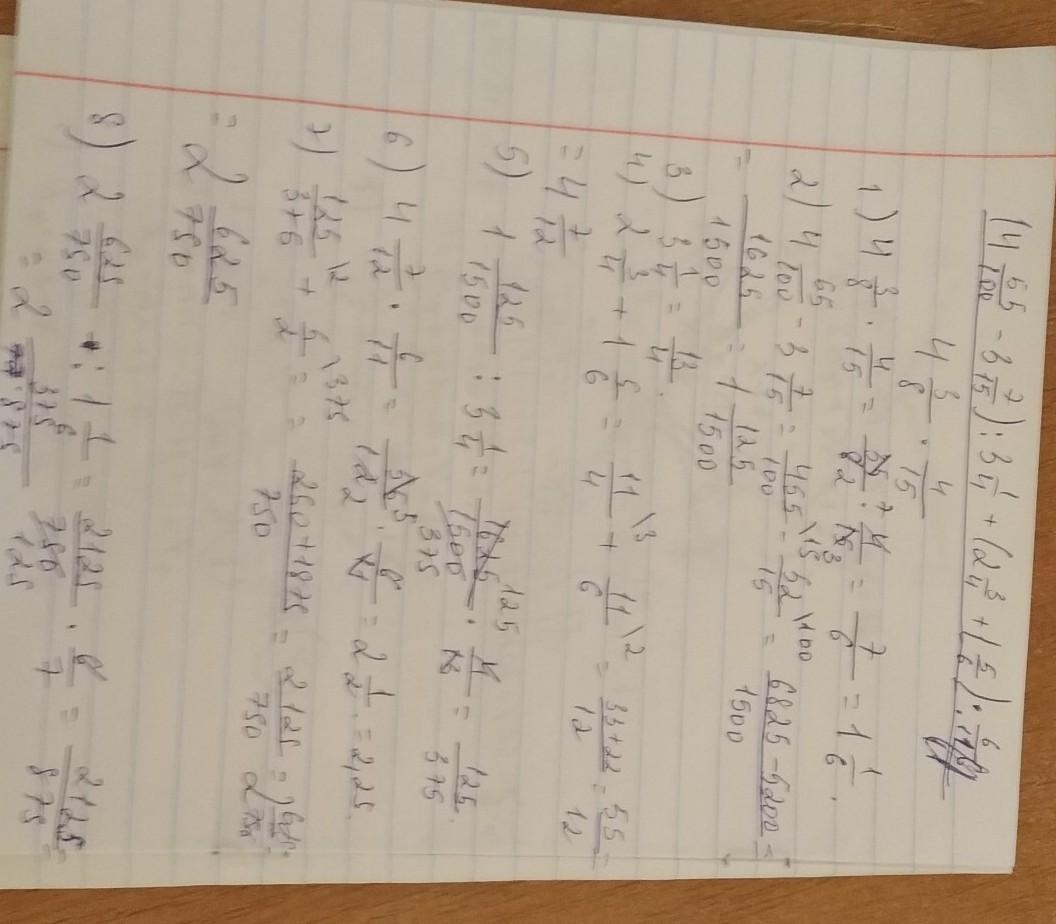 (4 55/100 - 3 7/15) : 3 1/4 + (2 3/4 + 1 5/6) · 6/11
4 3/8 · 4/15
1) 4 3/8 · 4/15 = 35/8 · 4/15 = 7/6 = 1 1/6.
2) 4 55/100 - 3 7/15 = 455/100 \15 - 52/15 \100 = (6825-5200)/1500 =
= 1625/1500 = 1 125/1500
3) 3 1/4 = 13/4.
4) 2 3/4 + 1 5/6 = 11/4 \3 + 11/6 \2 = (33+22)/12 = 55/12 =
= 4 7/12
5) 1 125/1500 : 3 1/4 = 1625/1500 · 4/13 = 125/375.
6) 4 7/12 · 6/11 = 55/12 · 6/11 = 2 1/2 = 2,25.
7) 125/375 \2 + 5/2 \375 = (250+1875)/750 = 2125/750 =
= 2 625/750
8) 2 625/750 : 1 1/6 = 2125/750 · 6/7 = 2125/875 =
= 2 375/875